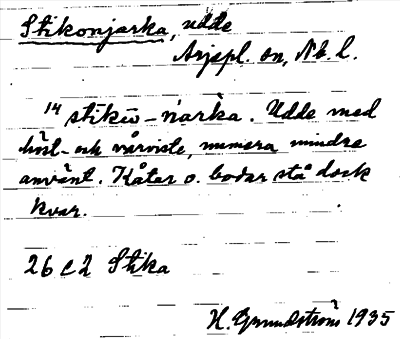 Stikonjarka, udde
Arjepl. sn, Nb. l.
14 stikō-ńarka. Udde med
höst- och vårviste, numera mindre
använt. Kåtar o. bodar stå dock
kvar.
26 c 2 Stika
H. Grundström 1935